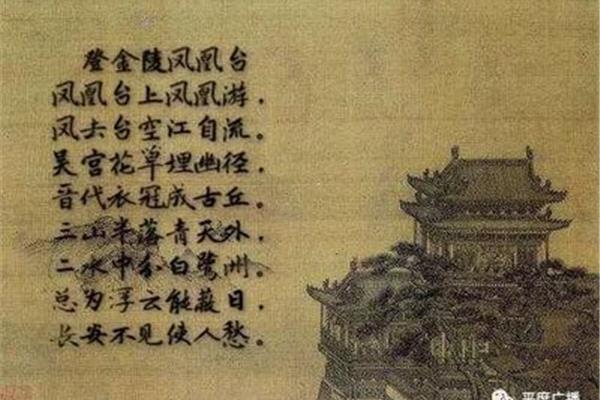 登金陵凤凰台
凤凰台上凤凰游，
凤去台空江自流。
吴宫花草埋幽径，
晋代衣冠成古丘。
三山半落青天外，
二水中分白鹭洲。
总为浮云能蔽日，
长安不见使人愁。
平度广播